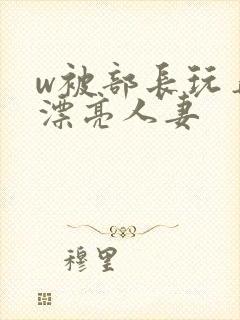 w被部長玩
漂亮人妻
穆里